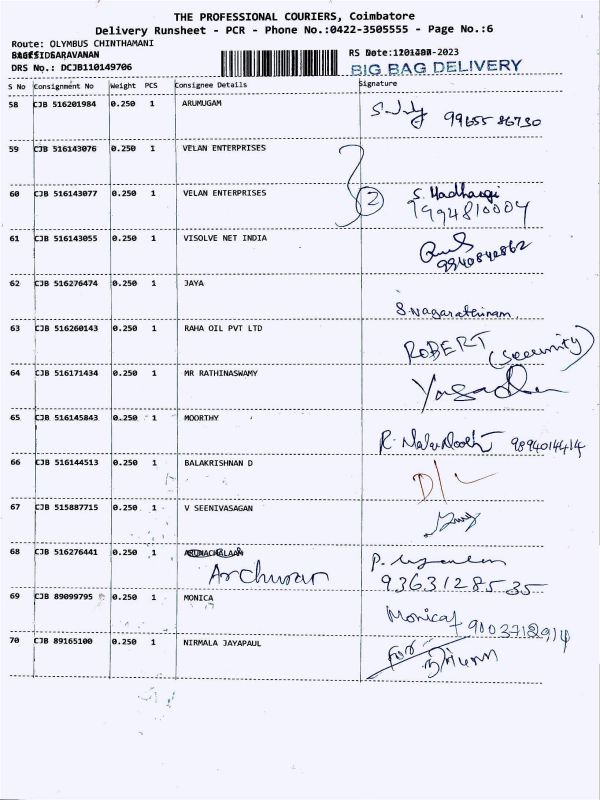 THE PROFESSIONAL COURIERS, Coimbatore
Delivery Runsheet - PCR - Phone No.:0422-3505555 - Page No.:6
Route: OLYMBUS CHINTHAMANI
DRS No.: DCJB110149706
RS Date: -2023
BIG BAG DELIVERY
S No Consignment No Weight PCS Consignee Details Signature
58 CJB 516201984 0.250 1 ARUMUGAM
99655 86730
59 CJB 516143076 0.250 1 VELAN ENTERPRISES
60 CJB 516143077 0.250 1 VELAN ENTERPRISES 2 S. Madhangi
9994810004
61 CJB 516143055 0.250 1 VISOLVE NET INDIA
9940840862
62 CJB 516276474 0.250 1 JAYA
S. Nagarathinam
63 CJB 516260143 0.250 1 RAHA OIL PVT LTD
ROBERT (Security)
64 CJB 516171434 0.250 1 MR RATHINASWAMY
65 CJB 516145843 0.250 1 MOORTHY
R. 9894014414
66 CJB 516144513 0.250 1 BALAKRISHNAN D
D/L
67 CJB 515887715 0.250 1 V SEENIVASAGAN
68 CJB 516276441 0.250 1
Archunan P.
9363128535
69 CJB 89099795 0.250 1 MONICA
Monica 9003718914
70 CJB 89165100 0.250 1 NIRMALA JAYAPAUL
For